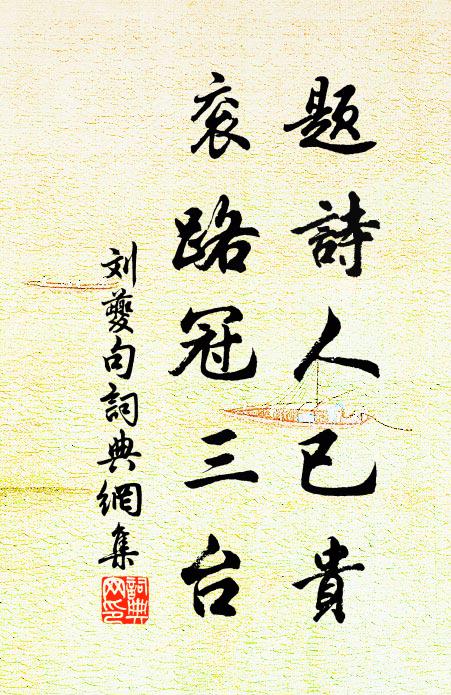 題詩人已貴
衮路冠三台
刘夔句詞典網集
詞典网印